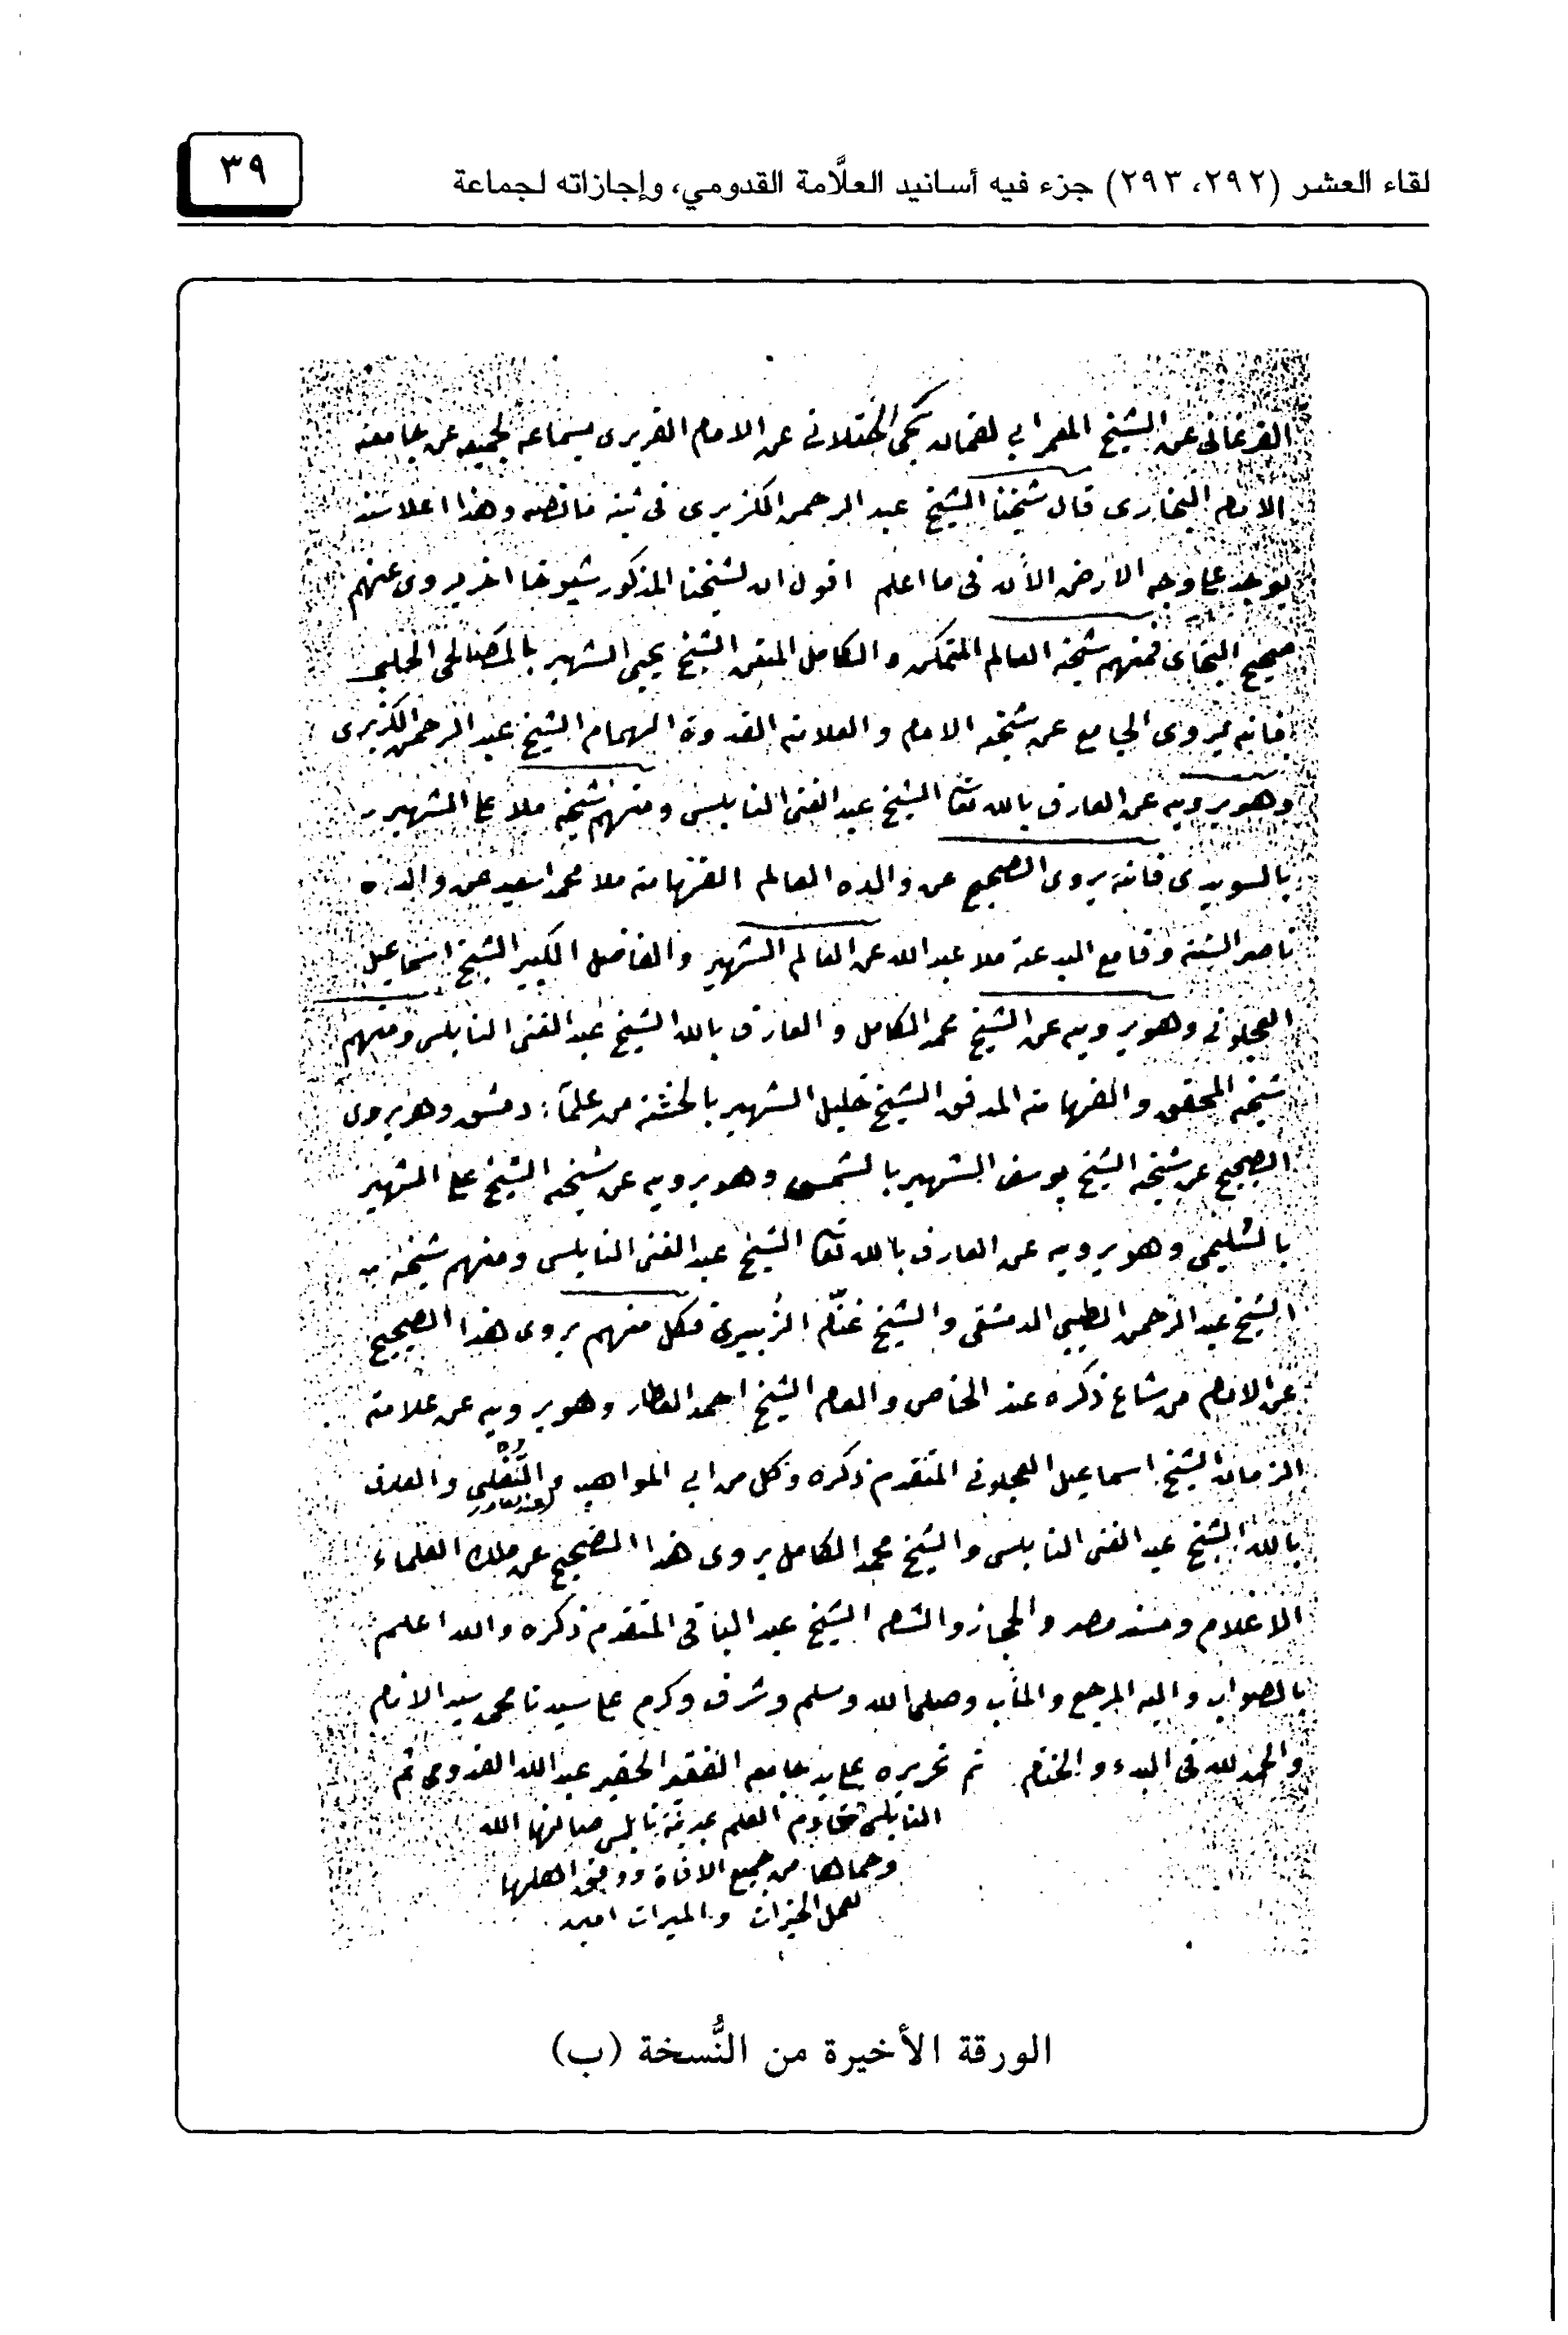 لقاء العشر (٢٩٢، ٢٩٣) جزء فيه أسانيد العلَّامة القدومي، وإجازاته لجماعة
٣٩
الفرغانى عن الشيخ المعمر ابي لقمان يحيى الختلانى عن الامام الفربرى بسماعه لجميعه عن جامعه
الامام البخارى قال شيخنا الشيخ عبد الرحمن الكزبرى فى ثبته ما نصه وهذا اعلا سند
يوجد على وجه الارض الآن فى ما اعلم اقول ان لشيخنا المذكور شيوخا اخر يروى عنهم
صحيح البخارى فمنهم شيخه العالم المتمكن و الكامل المتقن الشيخ يحيى الشهير بالمصالحى الحلبى
فانه يروى الجامع عن شيخه الامام و العلامه القدوة الهمام الشيخ عبد الرحمن الكزبرى
وهو يرويه عن العارف بالله تعا الشيخ عبد الغنى النابلسى ومنهم شيخه ملا على الشهير
بالسويدى فانه يروى الصحيح عن والده العالم الفهامه ملا محمد اسعيد عن والده
ناصر السنة وقامع البدعة ملا عبد الله عن العالم الشهير والفاضل الكبير الشيخ اسماعيل
العجلونى وهو يرويه عن الشيخ محمد الكامل و العارف بالله الشيخ عبد الغنى النابلسى ومنهم
شيخه المحقق و الفهامه المدقق الشيخ خليل الشهير بالخشه من علمآء دمشق وهو يروى
الصحيح عن شيخه الشيخ يوسف الشهير بالشمس وهو يرويه عن شيخه الشيخ على الشهير
بالسليمى وهو يرويه عن العارف بالله تعا الشيخ عبد الغنى النابلسى ومنهم شيخه
الشيخ عبد الرحمن الطيبى الدمشقى والشيخ غنام الزبيرى فكل منهم يروى هذا الصحيح
عن الامام من شاع ذكره عند الخاص والعام الشيخ احمد العطار وهو يرويه عن علامة
الزمان الشيخ اسماعيل العجلونى المتقدم ذكره وكل من ابى المواهب و التغلبى والعارف
عبد القادر
بالله الشيخ عبد الغنى النابلسى والشيخ محمد الكامل يروى هذا الصحيح عن ملك العلماء
الاعلام ومسند مصر والحجاز والشام الشيخ عبد الباقى المتقدم ذكره والله اعلم
بالصواب واليه المرجع والمآب وصلى الله وسلم وشرف وكرم على سيدنا محمد سيد الانام
والحمد لله فى البدء والختام تم تحريره على يد جامعه الفقير الحقير عبد الله القدومى ثم
النابلسى خادم العلم بمدينة نابلس صانها الله
وحماها من جميع الافاة ووفق اهلها
لعمل الخيرات والمبرات امين
الورقة الأخيرة من النُّسخة (ب)